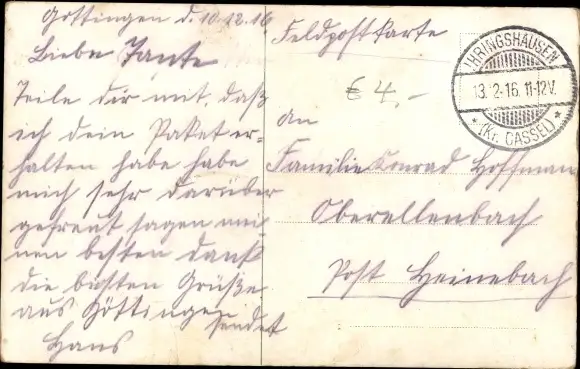 Göttingen d. 10.12.16
Liebe Tante
Teile dir mit, daß
ich dein Paket er-
halten habe habe
mich sehr darüber
gefreut sagen mei
nen besten dank
die besten Grüße
aus Göttingen
sendet
Hans
Feldpostkarte
€ 4,-
an
Familie Konrad Hoffmann
Oberellenbach
Post Heinebach
IHRINGSHAUSEN
13.2-16.11-12V.
* (Kr. CASSEL) *